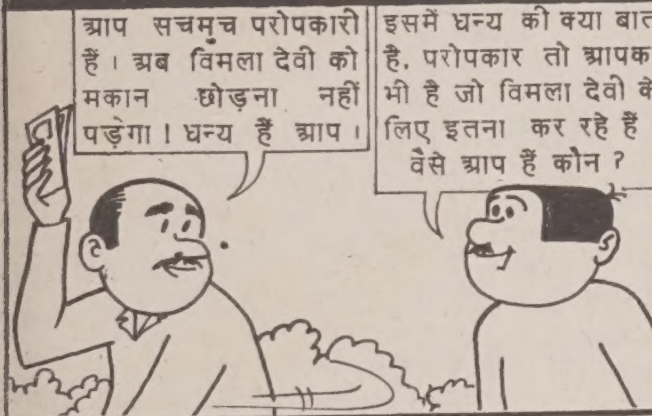 आप सचमुच परोपकारी
हैं। अब विमला देवी को
मकान छोड़ना नहीं
पड़ेगा! धन्य हैं आप।
इसमें धन्य की क्या बात
है. परोपकार तो आपक
भी है जो विमला देवी के
लिए इतना कर रहे हैं
वैसे आप हैं कौन?